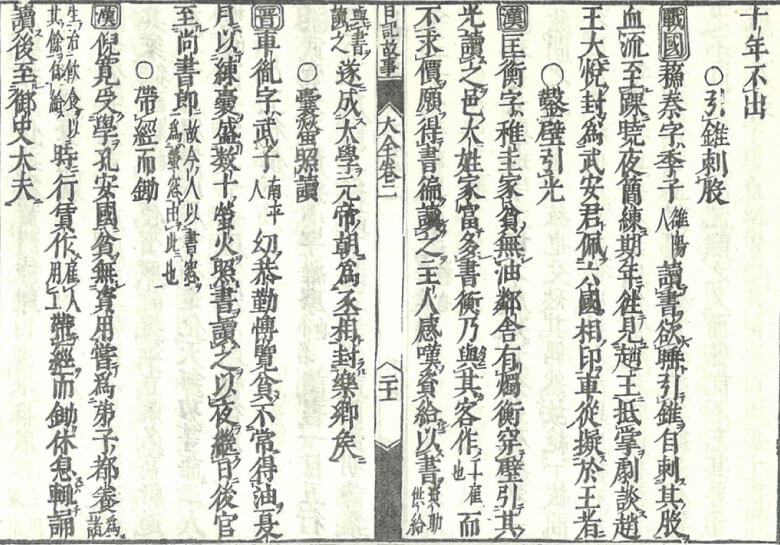 十年不出
〇引錐刺股
戰國 蘇秦字季子雒陽人讀書欲睡引錐自刺其股
血流至踝曉夜簡練期年往見趙王抵掌劇談趙
王大悅封為武安君佩六國相印車從擬於王者
〇鑿壁引光
漢 匡衡字稚圭家貧無油鄰舍有燭衡穿壁引其
光讀之邑大姓家富多書衡乃與其客作雇也而
不求價願得書徧讀之主人感嘆資給以書資助供給
日記故事 大全卷二
與書讀之遂成大學元帝朝為丞相封樂鄉矦
〇囊螢照讀
晉 車胤字武子南平人幼恭勤博覽貧不常得油夏
月以練囊盛数十螢火照書讀之以夜繼日後官
至尚書郎故今人以書窓為螢窓由此也
〇帶經而鋤
漢 倪寬受學孔安國貧無資用嘗為弟子都養為諸
生治飲食以其餘時行賃作雇人用工帶經而鋤休息輒誦
讀後至御史大夫